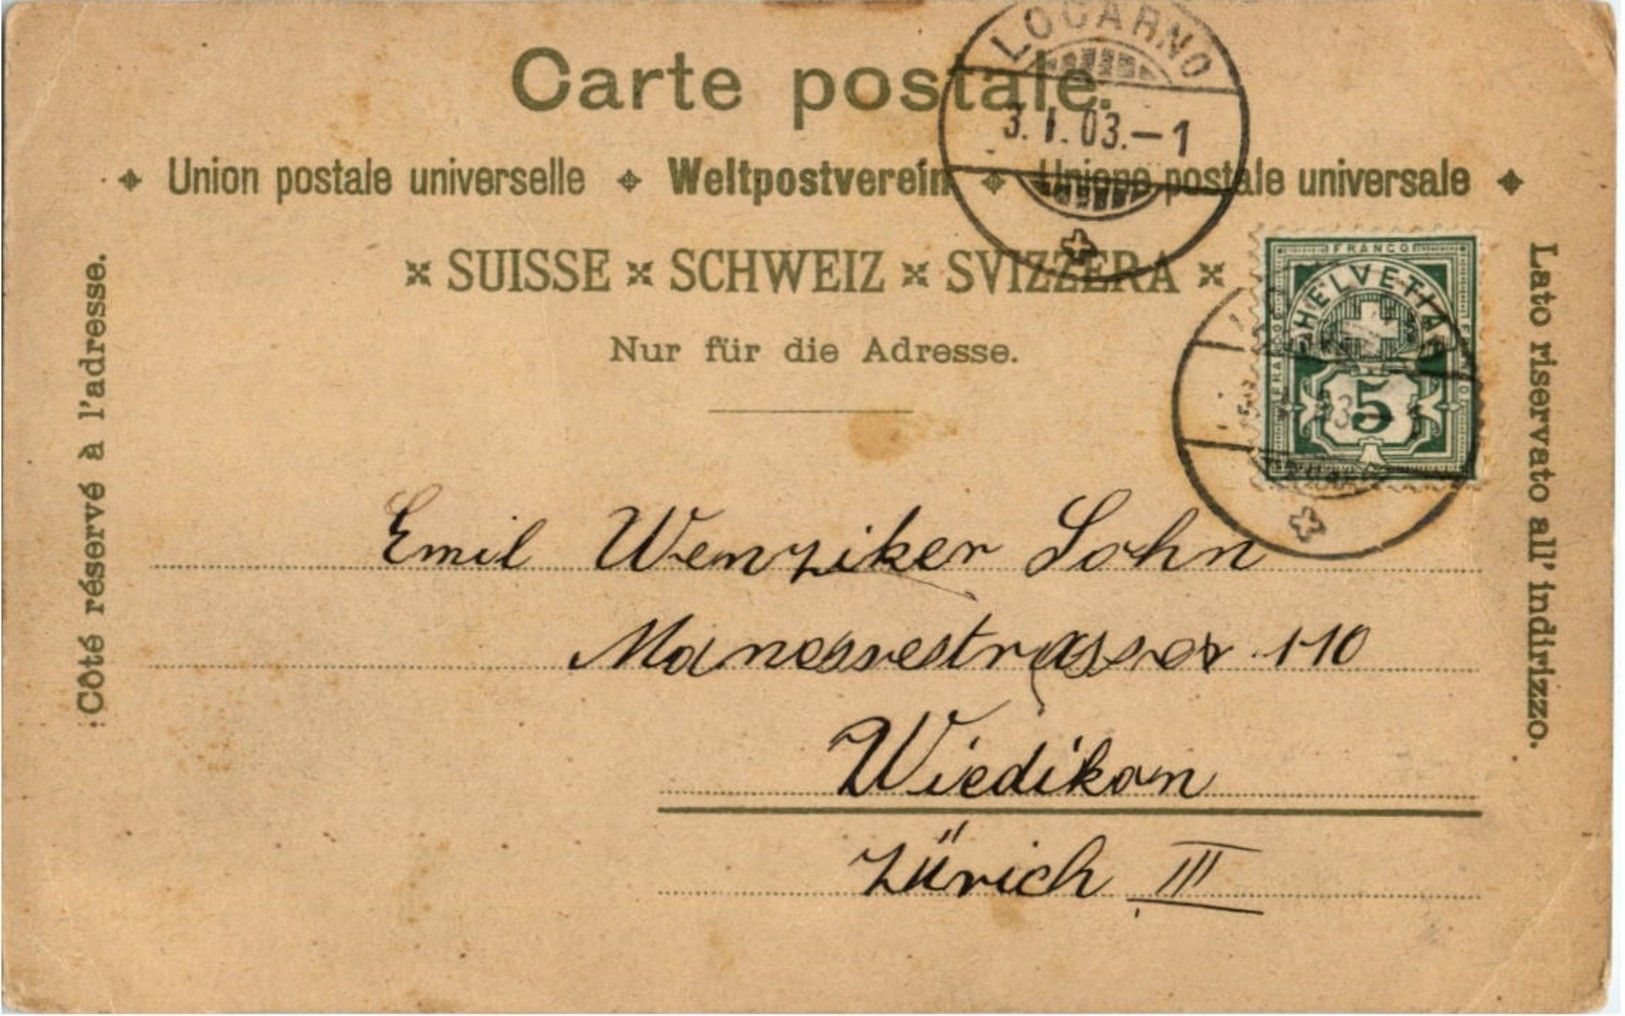 Carte postale.
Union postale universelle Weltpostverein Unione postale universale
SUISSE SCHWEIZ SVIZZERA
Nur für die Adresse.
Côté réservé à l'adresse.
Lato riservato all' indirizzo.
LOCARNO
3. I. 03.–1
FRANCO
HELVETIA
5
Emil Wenziker Sohn
Manessestrasse 110
Wiedikon
Zürich III